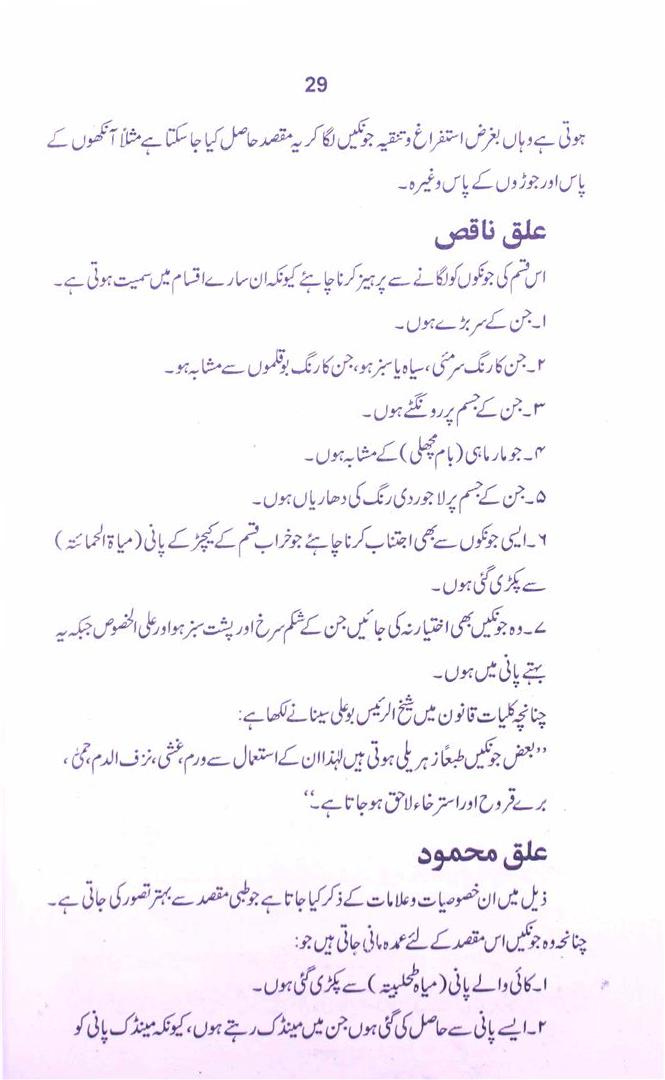 29
ہوتی ہے وہاں بغرض استفراغ و تنقیہ جونکیں لگا کر یہ مقصد حاصل کیا جا سکتا ہے مثلاً آنکھوں کے
پاس اور جوڑوں کے پاس وغیرہ۔
علق ناقص
اس قسم کی جونکوں کو لگانے سے پرہیز کرنا چاہئے کیونکہ ان سارے اقسام میں سمیت ہوتی ہے۔
۱۔ جن کے سر بڑے ہوں۔
۲۔ جن کا رنگ سرمئی، سیاہ یا سبز ہو، جن کا رنگ بوقلموں سے مشابہ ہو۔
۳۔ جن کے جسم پر رونگٹے ہوں۔
۴۔ جو مار ماہی (بام مچھلی) کے مشابہ ہوں۔
۵۔ جن کے جسم پر لاجوردی رنگ کی دھاریاں ہوں۔
۶۔ ایسی جونکوں سے بھی اجتناب کرنا چاہئے جو خراب قسم کے کیچڑ کے پانی (میاۃ الحمائتہ)
سے پکڑی گئی ہوں۔
۷۔ وہ جونکیں بھی اختیار نہ کی جائیں جن کے شکم سرخ اور پشت سبز ہو اور علی الخصوص جبکہ یہ
بہتے پانی میں ہوں۔
چنانچہ کلیات قانون میں شیخ الرئیس بوعلی سینا نے لکھا ہے:
’’بعض جونکیں طبعاً زہریلی ہوتی ہیں لہٰذا ان کے استعمال سے ورم، غشی، نزف الدم، حمیٰ،
برے قروح اور استرخاء لاحق ہو جاتا ہے۔‘‘
علق محمود
ذیل میں ان خصوصیات و علامات کے ذکر کیا جاتا ہے جو طبی مقصد سے بہتر تصور کی جاتی ہے۔
چنانچہ وہ جونکیں اس مقصد کے لئے عمدہ مانی جاتی ہیں جو:
۱۔ کائی والے پانی (میاہ طحلبیتہ) سے پکڑی گئی ہوں۔
۲۔ ایسے پانی سے حاصل کی گئی ہوں جن میں مینڈک رہتے ہوں، کیونکہ مینڈک پانی کو